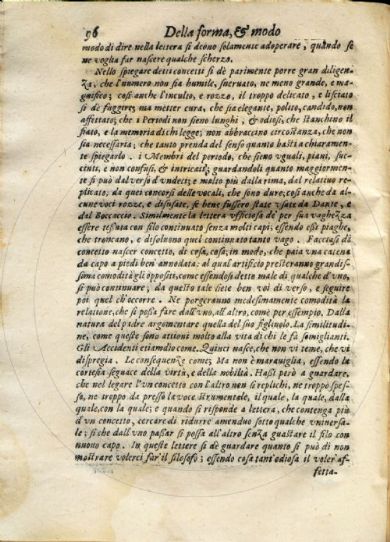 96 Della forma, & modo
modo di dire nella lettera si deono solamente adoperare, quando se
ne voglia far nascere qualche scherzo.
Nello spiegare detti concetti si dè parimente porre gran diligen-
za, che l'numero non sia humile, sneruato, ne meno grande, e ma-
gnifico; così anche l'inculto, e rozzo, il troppo delicato, e lisciato
si dè fuggire; ma metter cura, che sia elegante, polito, candido, non
affettato; che i Periodi non sieno lunghi, & odiosi, che stanchino il
fiato, e la memoria di chi legge; non abbraccino circostanza, che non
sia necessaria; che tanto prenda del senso quanto basti a chiaramen-
te spiegarlo. i Membri del periodo, che sieno vguali, piani, suc-
cinti, e non confusi, & intricati; guardandoli quanto maggiormen-
te si può dal verso d'vndeci; e molto più dalla rima, dal relatiuo re-
plicato, da que' riuorsi delle vocali, che sono dure; così anche da al-
cune voci rozze, e disusate, se bene fussero state vsate da Dante, e
dal Boccaccio. Similmente la lettera vfficiosa dè per sua vaghezza
essere tessuta con filo continuato senza molti capi; essendo essi piaghe,
che troncano, e dissoluono quel continuato tanto vago. Facciasi di
concetto nascer concetto, di cosa, cosa; in modo, che paia vna catena
da capo a piedi ben annodata. al qual artificio presteranno grandis-
sima comodità gli oppositi, come essendosi detto male di qualche d'vno,
si può continuare, da questo tale siete ben voi diuerso, e seguire
poi quel ch'occorre. Ne porgeranno medesimamente comodità la
relatione, che si possa fare dall'vno, all'altro, come per esempio. Dalla
natura del padre argomentare quella del suo figliuolo. La similitudi-
ne, come queste sono attioni molto alla vita di chi le fà somiglianti.
Gli Accidenti etiamdio come. Quinci nasce, che non vi teme, che vi
dispregia. Le conseguenze come; Ma non è marauiglia, essendo la
cortesia seguace della virtù, e della nobiltà. Hassi però a guardare,
che nel legare l'vn concetto con l'altro non si replichi, ne troppo spes-
so, ne troppo da presso le voce strumentale, il quale, la quale, dalla
quale, con la quale; e quando si risponde a lettera, che contenga più
d'vn concetto, cercare di ridurre amenduo sotto qualche vniuersa-
le; si che dall'vno passar si possa all'altro senza guastare il filo con
nuouo capo. In queste lettere si dè guardare quanto si può di non
mostrare volerci far il filosofo; essendo cosa tant'odiosa il voler af-
fetta-